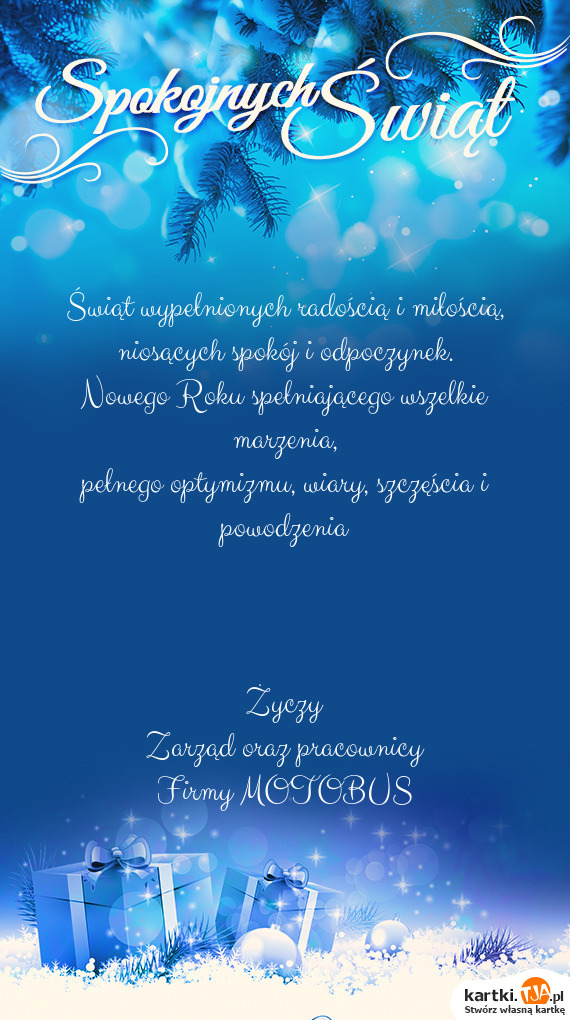 Spokojnych Świąt
Świąt wypełnionych radością i miłością,
niosących spokój i odpoczynek.
Nowego Roku spełniającego wszelkie
marzenia,
pełnego optymizmu, wiary, szczęścia i
powodzenia
Życzy
Zarząd oraz pracownicy
Firmy MOTOBUS
kartki.TJA.pl
Stwórz własną kartkę